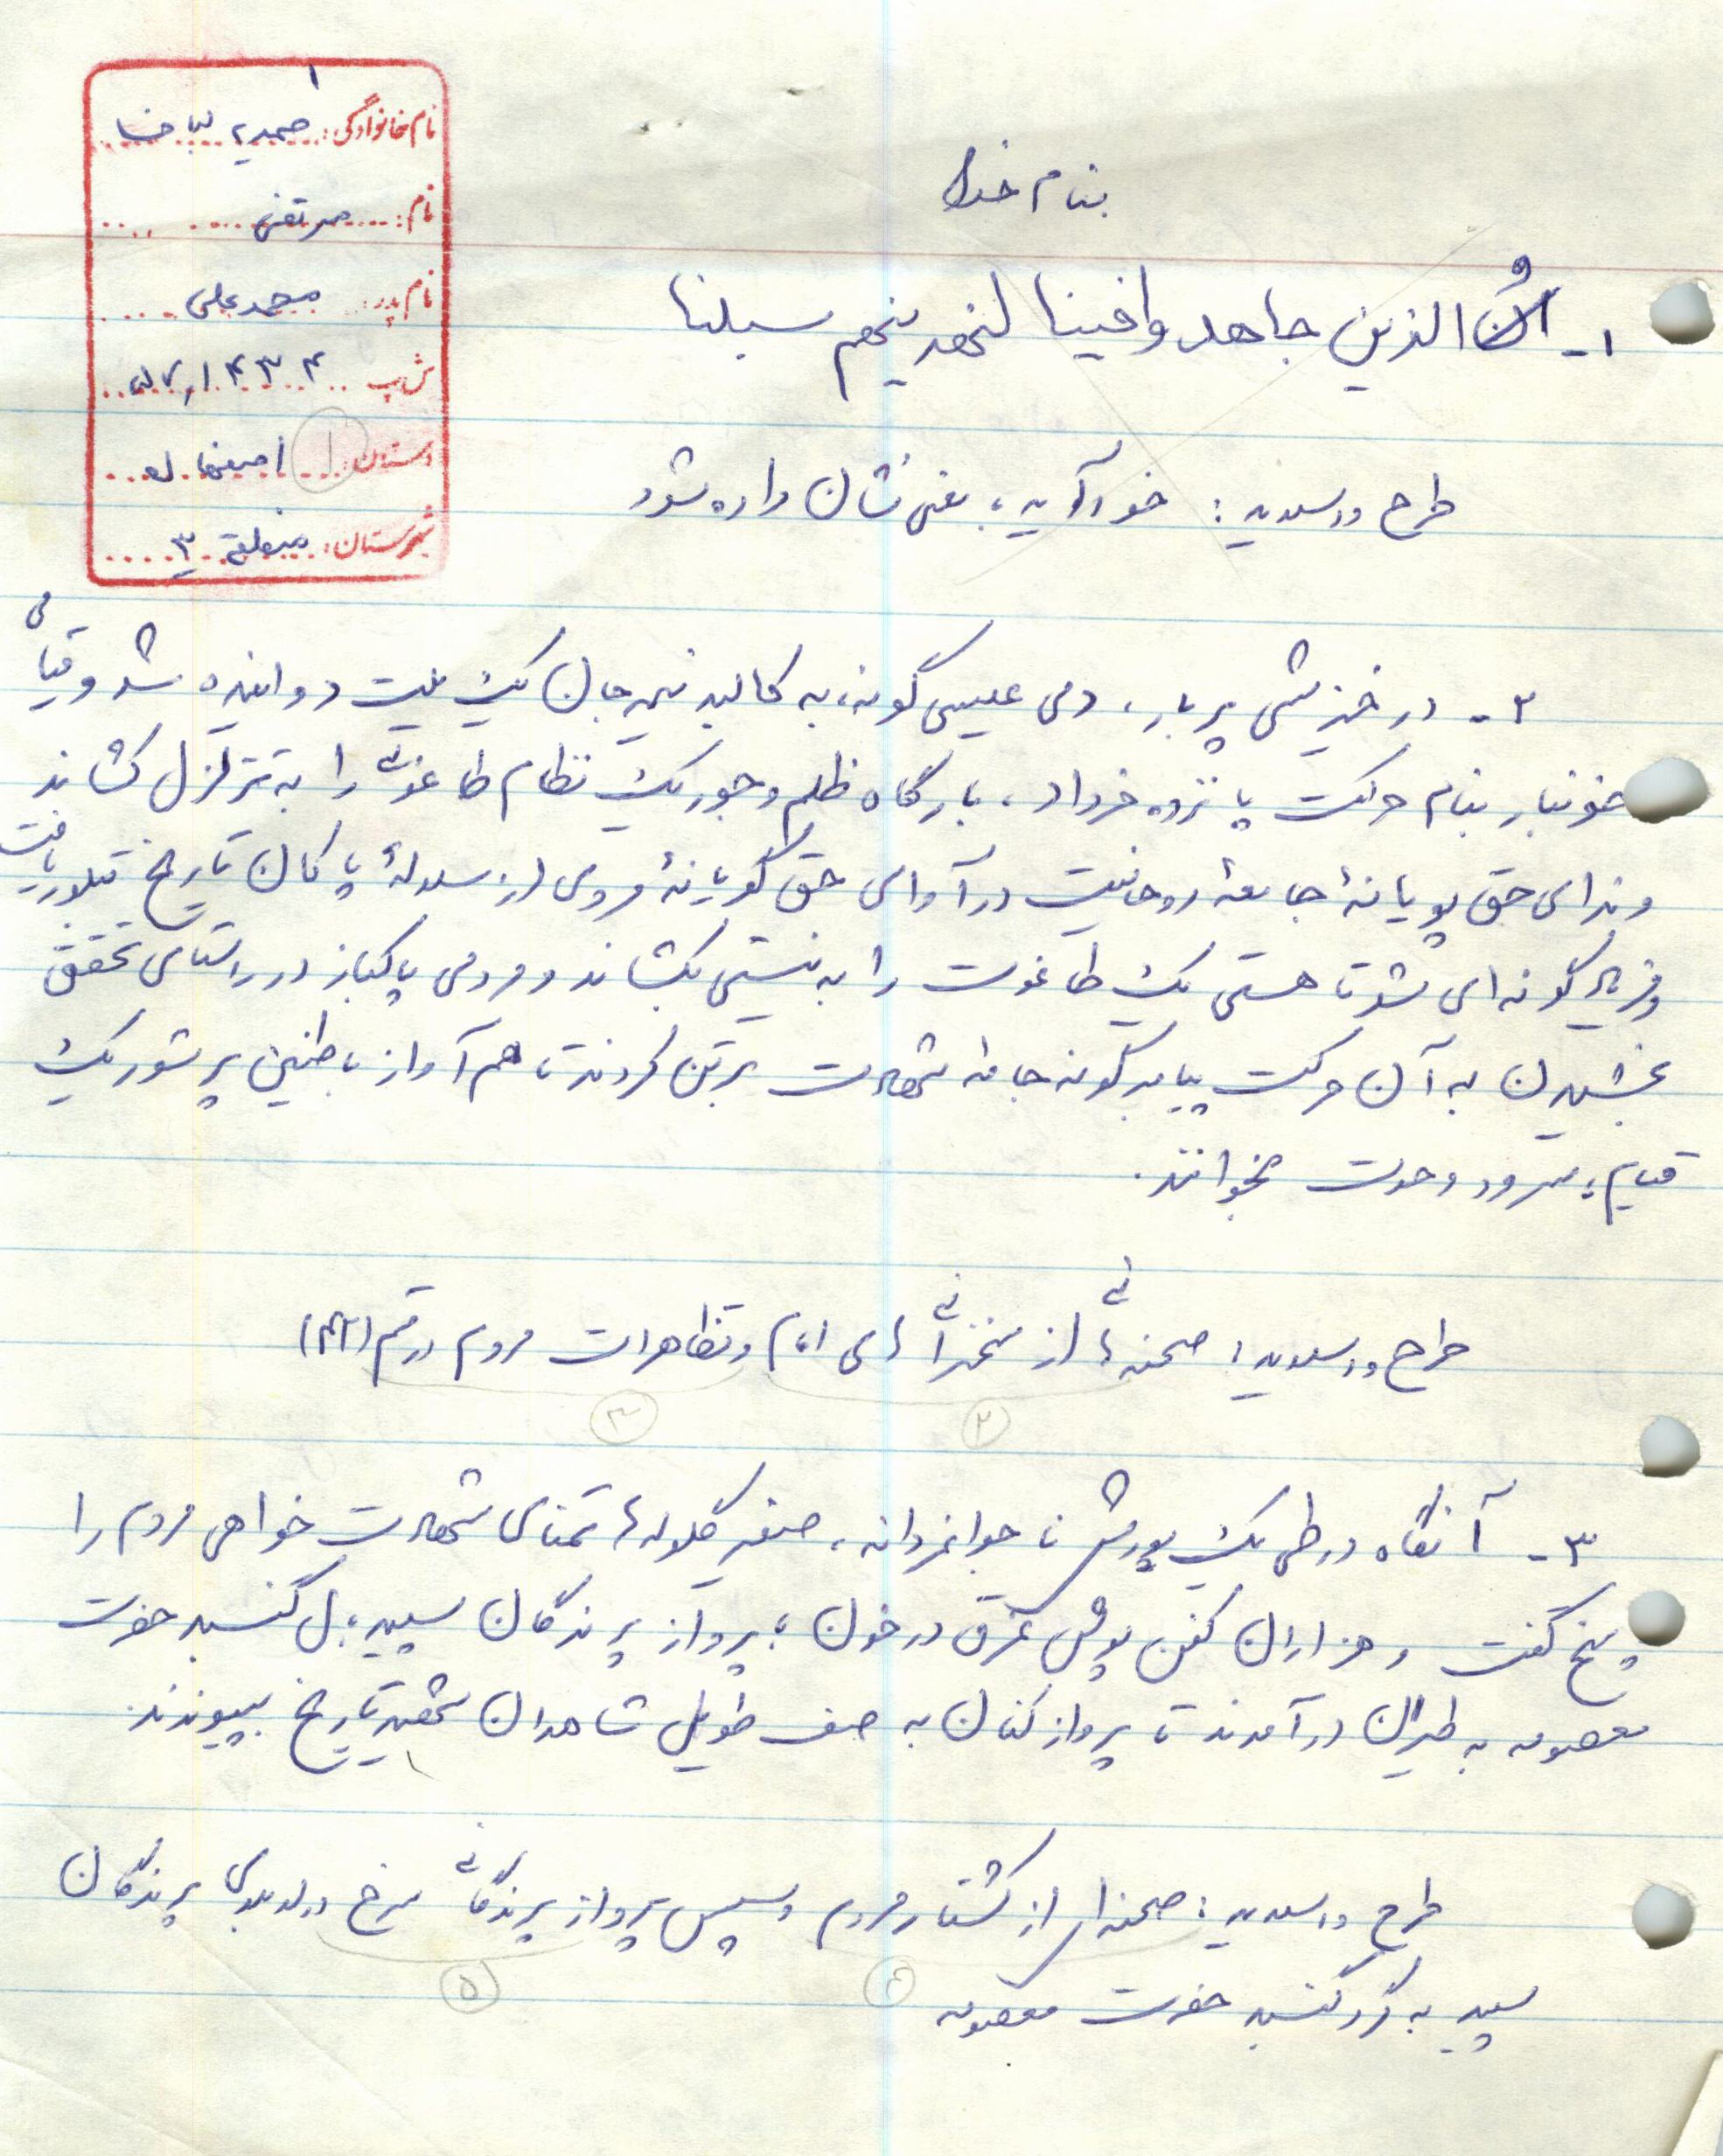 نام خانوادگی: صمدی لباخا
نام: مرتضی
نام پدر: محمدعلی
ش پ
دستان: ۱
شهرستان: منطقه ۳
بنام خدا
۱- و الذین جاهدوا فینا لنهدینهم سبلنا
طرح در اسلاید: خود آیه، یعنی نشان داده شود
۲- در خیزشی پر بار، دمی عیسی گونه، به کالبد نیمه جان یک ملت دوانیده شد و قیامی
خونبار بنام حرکت پانزده خرداد، بارگاه ظلم و جور یک نظام طاغوتی را به تزلزل کشاند
و ندای حق پویانهٔ جامعهٔ روحانیت در آوای حق گویانهٔ مردی از سلالهٔ پاکان تاریخ تبلور یافت
و فریاد گونه ای شد تا هستی یک طاغوت را به نیستی بکشاند و مردمی پاکباز در راستای تحقق
بخشیدن به آن حرکت پیامبرگونه جامه شهادت بر تن کردند تا هم آواز با طنین پر شور یک
قیام، سرود وحدت بخوانند.
طرح در اسلاید: صحنه هائی از سخنرانی های امام و تظاهرات مردم در قم (۴۲)
۲
۳
۳- آنگاه در طی یک یورش نا جوانمردانه، صفیر گلوله ها تمنای شهادت خواهی مردم را
پاسخ گفت و هزاران کفن پوش غرق در خون با پرواز پرندگان سپید بال گنبد حضرت
معصومه به طیران در آمدند تا پرواز کنان به صف طویل شاهدان شهید تاریخ بپیوندند.
طرح در اسلاید: صحنه ای از کشتار مردم و سپس پرواز پرندگانی سرخ در لابلای پرندگان
۴
۵
سپید به گرد گنبد حضرت معصومه